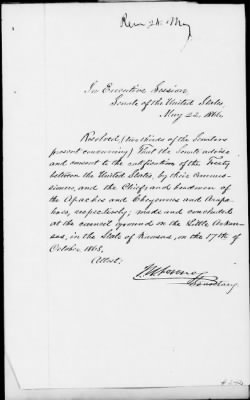 Rec 24 May
In Executive Session,
Senate of the United States,
May 22, 1866.
Resolved, (two thirds of the Senators
present concurring,) That the Senate advise
and consent to the ratification of the Treaty
between the United States, by their commis-
sioners, and the Chiefs and headmen of
the Apaches and Cheyennes and Arapa-
hoes, respectively, made and concluded
at the council ground on the Little Arkan-
sas, in the State of Kansas, on the 17th of
October 1865.
Attest:
J W Forney
Secretary